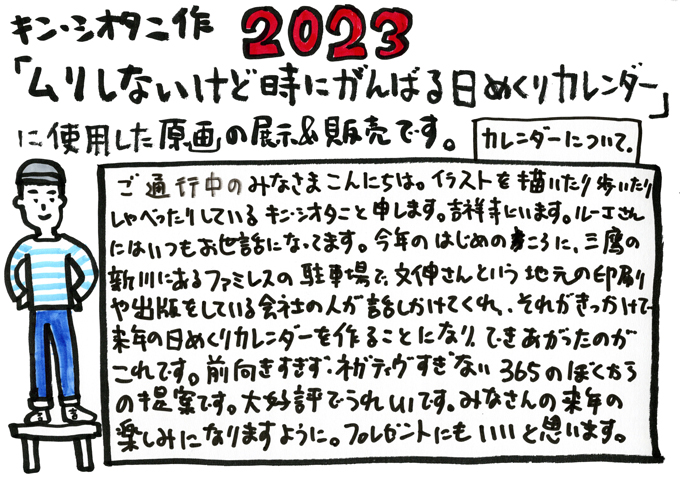 キン・シオタニ作 2023
「ムリしないけど時にがんばる日めくりカレンダー」
に使用した原画の展示&販売です。
カレンダーについて。
ご通行中のみなさまこんにちは。イラストを描いたり歩いたり
しゃべったりしているキン・シオタニと申します。吉祥寺にいます。ルーエさん
にはいつもお世話になってます。今年のはじめのころに、三鷹の
新川にあるファミレスの駐車場で、文伸さんという地元の印刷
や出版をしている会社の人が話しかけてくれ、それがきっかけで
来年の日めくりカレンダーを作ることになり、できあがったのが
これです。前向きすぎず・ネガティヴすぎない365のぼくから
の提案です。大好評でうれしいです。みなさんの来年の
楽しみになりますように。プレゼントにもいいと思います。